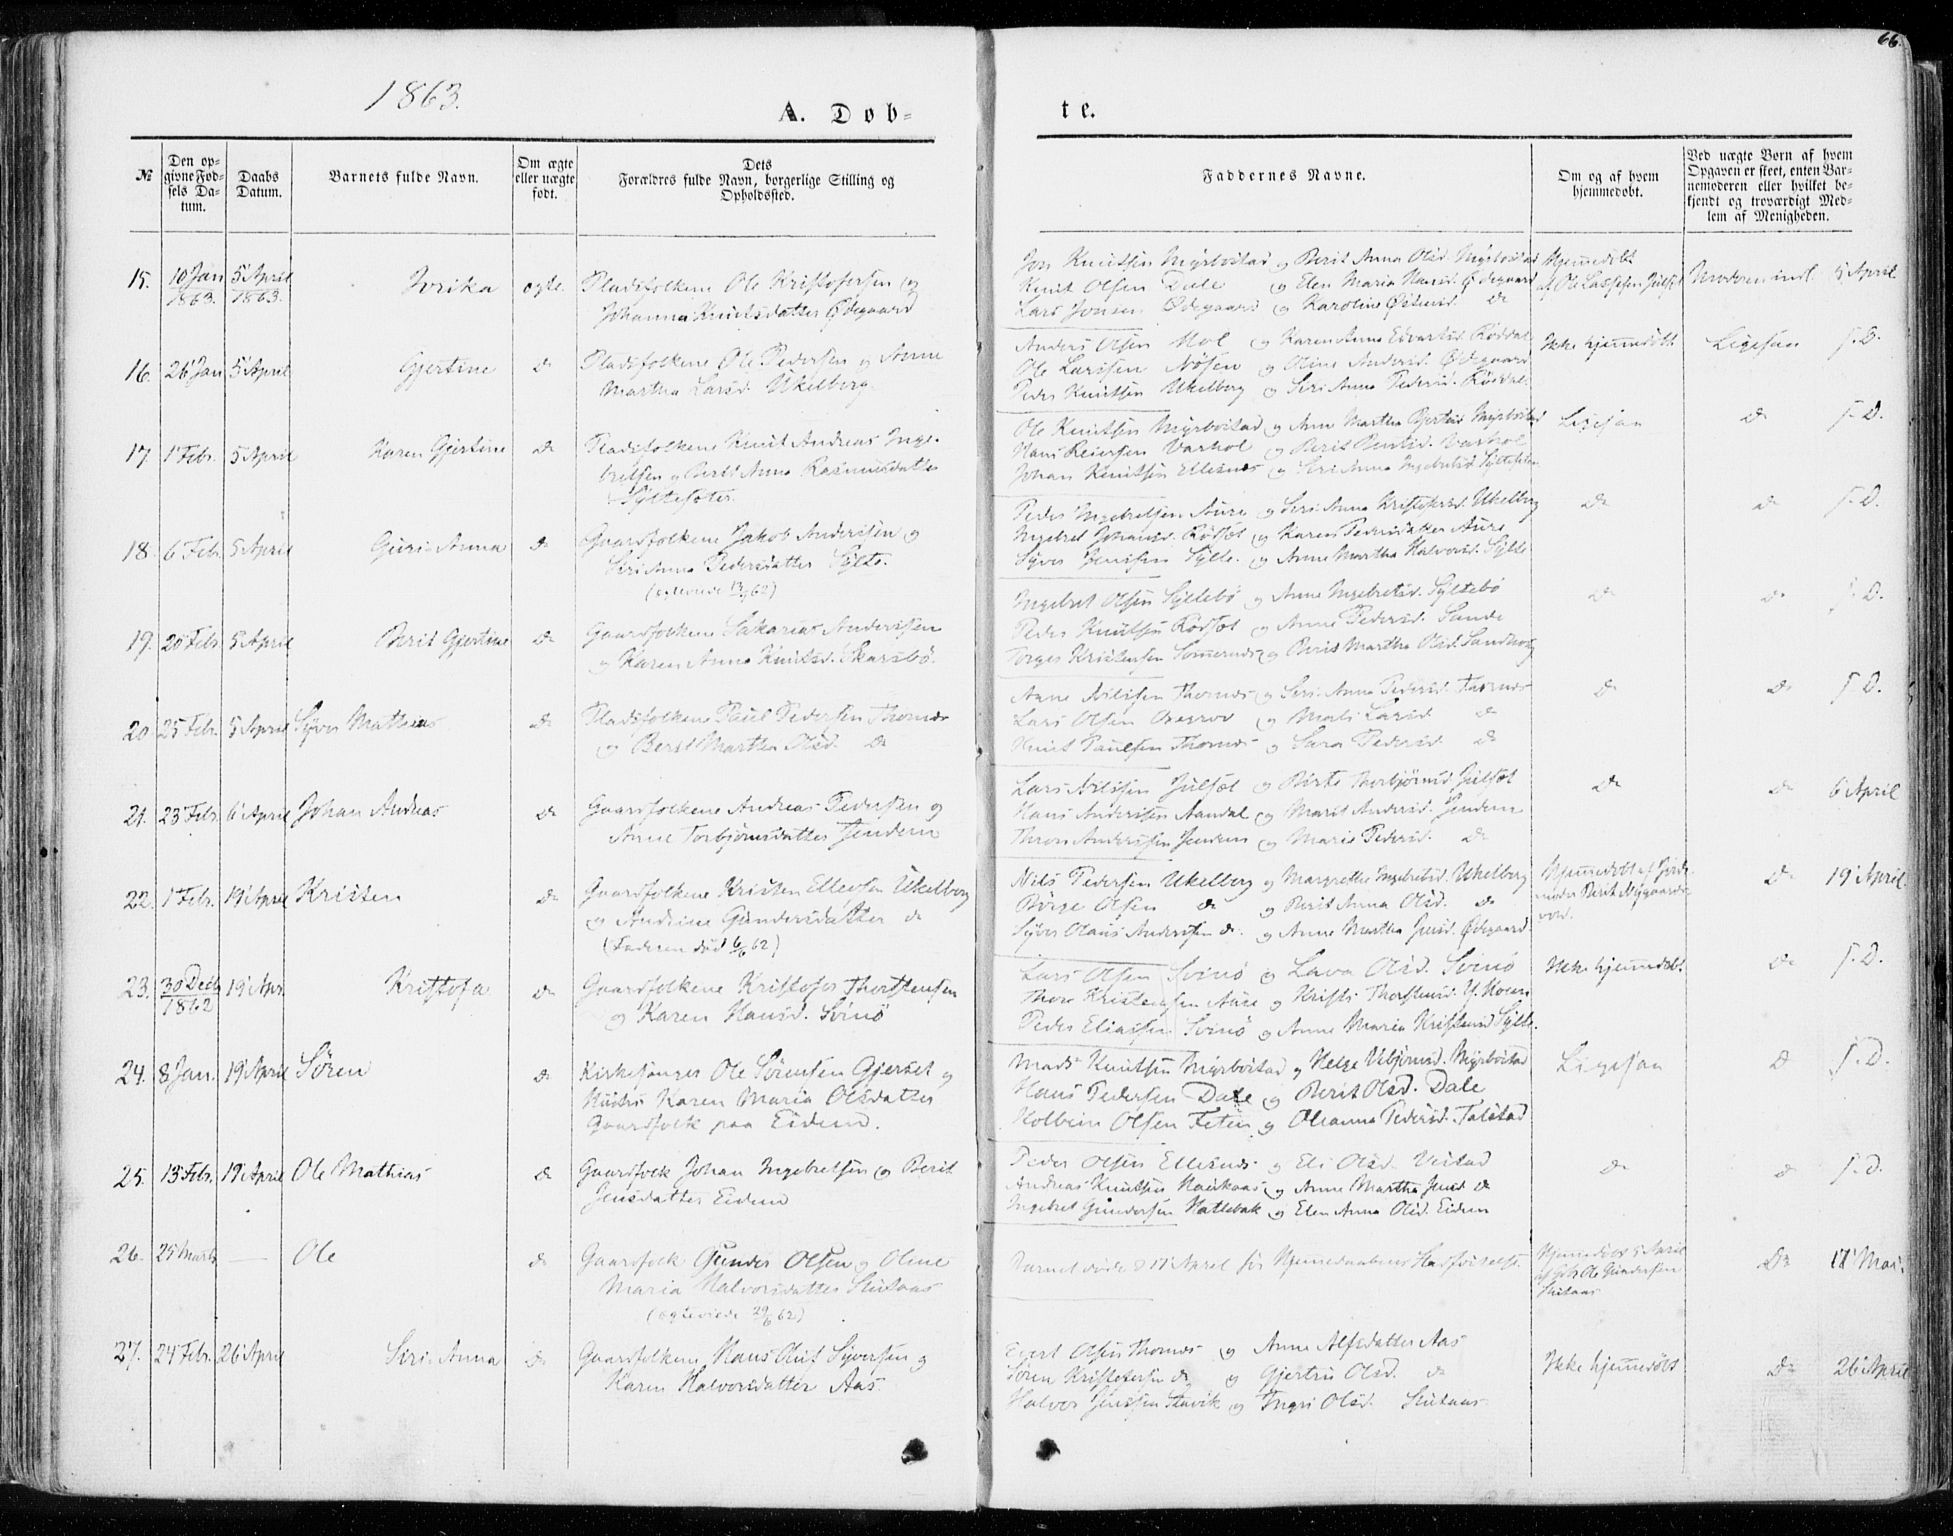 66.
1863.
A. Døb-
te.
№
Den op-
givne Fød-
sels Da-
tum.
Daabs
Datum.
Barnets fulde Navn.
Om ægte
eller uægte
født.
Dets
Forældres fulde Navn, borgerlige Stilling og
Opholdssted.
Faddernes Navne.
Om og af hvem
hjemmedøbt.
Ved uægte Børn af hvem
Opgaven er skeet, enten Bar-
nemoderen eller hvilket be-
kjendt og troværdigt Med-
lem af Menigheden.
15. 10 Jan 1863. 5 April 1863. ægte. Pladsfolkene Ole Kristofersen og
Johanna Knutsdatter Ødegaard
Jon Knutsen Myrbøstad og Berit Anna Olsd. Myrbøstad
Knut Olsen Dale og Elen Maria Hansd. Ødegaard
Lars Jonsen Ødegaard og Karoline do
Hjemmedøbt
af Ole Lassesen Julset
Moderen indl. 5 April
16. 26 Jan 5 April Gjertine do Pladsfolkene Ole Pedersen og Anne
Martha Larsd. Ukelberg.
Anders Olsen Hol og Karen Anna Edvartsd. Røddal
Ole Larssen Nøsen og Oline Andersd. Ødegaard
Peder Knutsen Ukelberg og Seri Anna Pedersd. Røddal.
Ikke hjemmedøbt Ligesaa S. D.
17. 1 Febr. 5 April Karen Gjertine do Pladsfolkene Knut Andreas Inge-
bretsen og Berit Anna Rasmusdatter
Syltesæter.
Ole Knutsen Myrbøstad og Ane Martha Myrbøstad
Hans Reiersen Varhol og Berit Varhol
Johan Knutsen Ellesnes og Seri Anna Ingebretsd. Syltesæter
Ligesaa do S. D.
18. 6 Febr. 5 April Guri Anna do Gaardfolkene Jakob Andersen og
Seri Anna Pedersdatter Sylte.
Peder Ingebretsen Aure og Seri Anna Kristofersd. Ukelberg
Ingebret Johansd. Rødset og Karen Pedersdatter Aure
Syver Jenssen Sylte. og Anne Martha Halvorsd. Sylte
do do S. D.
19. 20 Febr. 5 April Berit Gjertine do Gaardfolkene Sakarias Anderssen
og Karen Anna Knutsd. Skarsbø.
Ingebret Olsen Syltebø og Anne Ingebretsd. Syltebø
Peder Knutsen Rødset og Anne Pedersd. Sande
Torger Kristensen Sommernes og Berit Martha Olsd. Sandnes
do do S. D.
20. 25 Febr. 5 April Syver Mathias do Pladsfolkene Paul Pedersen Thornes
og Berit Martha Olsd. do
Arne Nilssen Thornes og Seri Anna Pedersd. Tornes
Lars Olsen og Marli Larsd. do
Knut Paulsen Thornes og Sara Pedersd. do
do do S. D.
21. 23 Febr. 6 April Johan Andreas do Gaardfolkene Andreas Pedersen og
Anne Torbjørnsdatter Jendem
Lars Nilssen Julset og Birte Thorbjørnsd. Julset
Hans Anderssen Aandal og Marit Andersd. Jendem
Thron Anderssen Jendem og Marit Pedersd. do
do do 6 April
22. 1 Febr. 19 April Kristen do Gaardfolkene Kristen Ellevsen Ukelberg
og Andrine Gundersdatter do
(Faderen død 62)
Nils Pedersen Ukelberg og Margrethe Ingebretsd. Ukelberg
Børge Olsen do og Berit Anna Olsd. do
Syver Olaus Anderssen do. og Anne Martha Jensd. Ødegaard.
Hjemmedøbt af Jorde-
moder Berit Nygaards-
vold.
do 19 April.
23. 30 Decb. 1862 19 Apr. Kristofa do Gaardfolkene Kristofer Thorstensen
og Karen Hansd. Svinø
Lars Olsen Svinø og Lava Olsd. Svinø
Thore Kristensen Aure og Kristi Thorstensd. Y. Moen
Peder Eliassen Svinø og Anne Maria Kristensd. Sylte.
Ikke hjemmedøbt. do S. D.
24. 8 Jan. 19 April Søren do Kirkesanger Ole Sørensen Gjerset og
Hustru Karen Maria Olsdatter
Gaardfolk paa Eidem.
Mads Knutsen Myrbøstad og Helge Myrbøstad
Hans Pedersen Dale og Berit Olsd. Dale
Kolbein Olsen Feten og Oleanna Pedersd. Talstad
Ligesaa do S. D.
25. 13 Febr. 19 April Ole Mathias do Gaardfolk Johan Ingebretsen og Berit
Jensdatter Eidem
Peder Olsen Ellesnes og Eli Olsd. Vestad
Andreas Knutsen Haukaas og Anne Martha Jensd. do
Ingebret Gundersen Hatlebak og Elen Anna Olsd. Eidem
do do S. D.
26. 25 Marts — Ole do Gaardfolk Gunder Olsen og Oline
Maria Halvorsdatter Skutaas
(ægteviede 29/6 62)
Barnet døde d 17 April før Hjemmedaabens Stadfæstelse.
Hjemmedøbt 5 April
af Gbr. Ole Gundersen
Skutaas
do 17 Mai.
27. 24 Febr. 26 April Siri Anna do Gaardfolkene Hans Knut Syversen og
Karen Halvorsdatter Aas
Evert Olsen Thornes og Anne Alfsdatter Aas
Søren Kristofersen do og Gjertru Olsd. do
Halvor Jenssen Stavik og Ingri Olsd. Skutaas
Ikke hjemmedøbt do 26 April